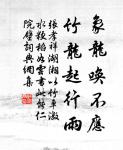 象龍喚不應
竹龍起行雨
張孝祥湖湘以竹車激
水粳稻如雲書此能仁
院壁詞典網集